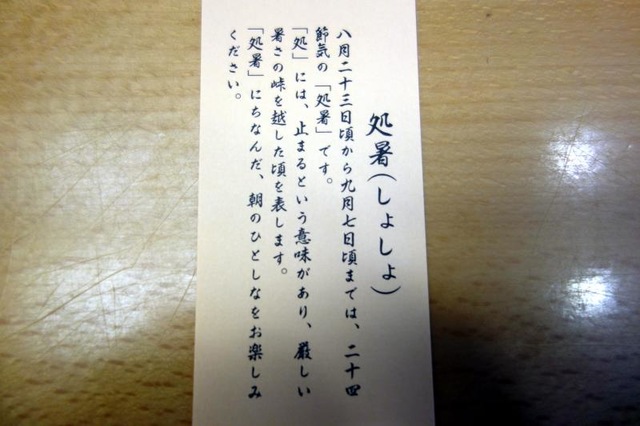 処暑(しょしょ)
八月二十三日頃から九月七日頃までは、二十四
節気の「処暑」です。
「処」には、止まるという意味があり、厳しい
暑さの峠を越した頃を表します。
「処暑」にちなんだ、朝のひとしなをお楽しみ
ください。